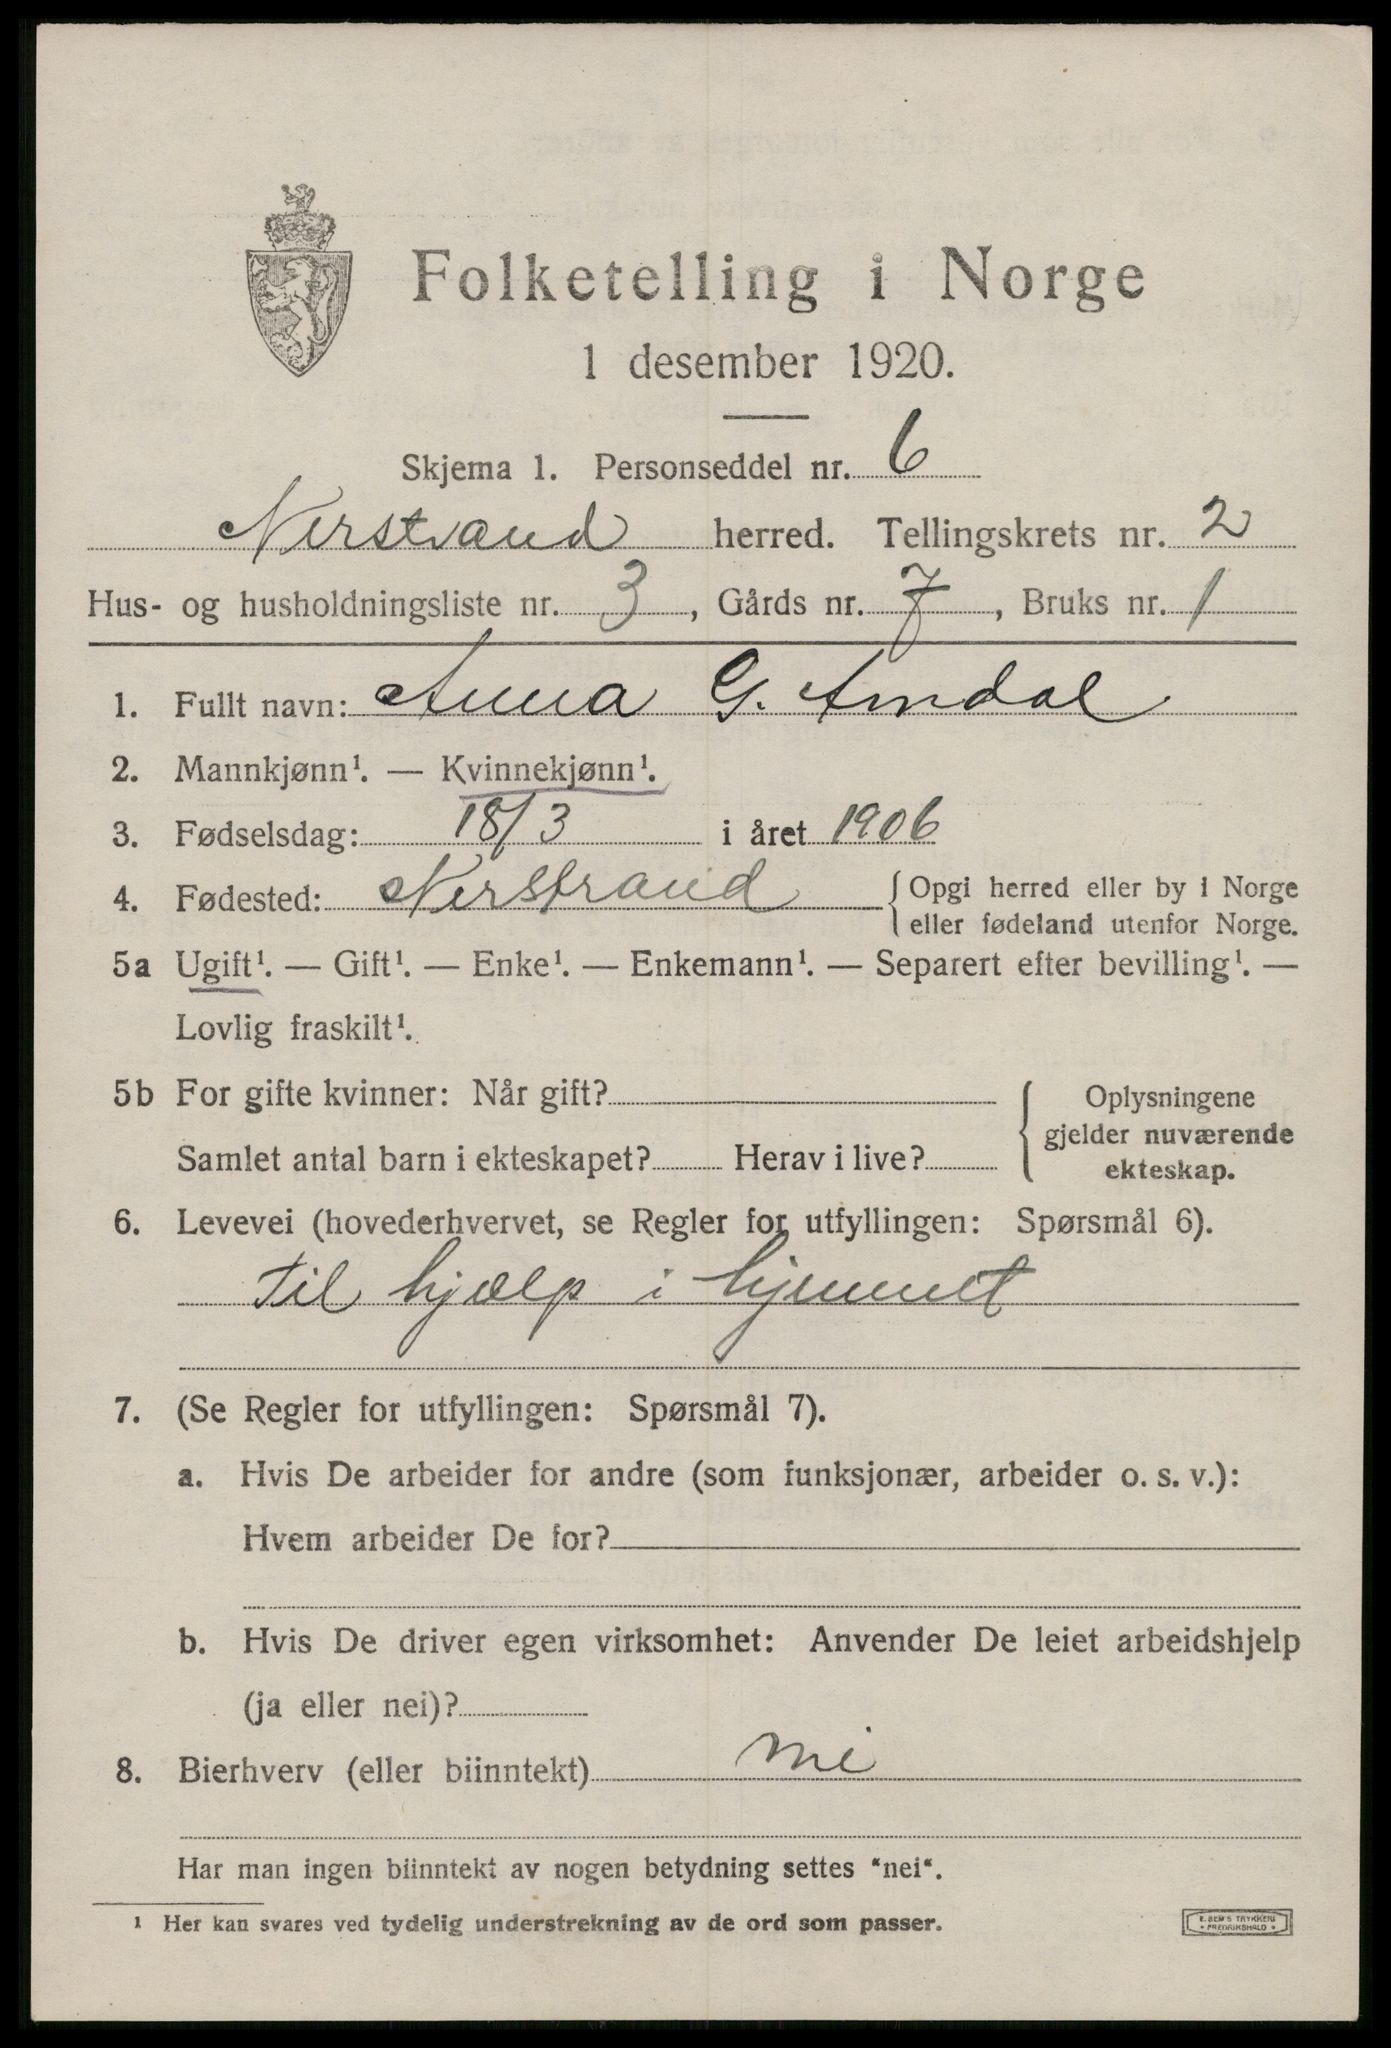 Folketelling i Norge
1 desember 1920.
Skjema 1. Personseddel nr. 6
Nerstrand herred. Tellingskrets nr. 2
Hus- og husholdningsliste nr. 3, Gårds nr. 7, Bruks nr. 1
1. Fullt navn: Anna G. Amdal
2. Mannkjønn¹. — Kvinnekjønn¹.
3. Fødselsdag: 18/3 i året 1906
4. Fødested: Nerstrand { Opgi herred eller by i Norge
eller fødeland utenfor Norge.
5a Ugift¹. — Gift¹. — Enke¹. — Enkemann¹. — Separert efter bevilling¹. —
Lovlig fraskilt¹.
5b For gifte kvinner: Når gift?
Samlet antal barn i ekteskapet? Herav i live?
{ Oplysningene
gjelder nuværende
ekteskap.
6. Levevei (hovederhvervet, se Regler for utfyllingen: Spørsmål 6).
Til hjælp i hjemmet
7. (Se Regler for utfyllingen: Spørsmål 7).
a. Hvis De arbeider for andre (som funksjonær, arbeider o. s. v.):
Hvem arbeider De for?
b. Hvis De driver egen virksomhet: Anvender De leiet arbeidshjelp
(ja eller nei)?
8. Bierhverv (eller biinntekt) nei
Har man ingen biinntekt av nogen betydning settes "nei".
¹ Her kan svares ved tydelig understrekning av de ord som passer.
E. SEM'S TRYKKERI
• FREDRIKSHALD •